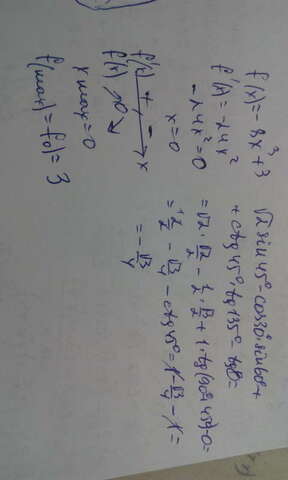 f(x)=-8x³+3
f'(x)=-24x²
-24x²=0
x=0
f'(x) + - x
f(x) ↗ 0 ↘
x max=0
f(max)=f(0)=3
√2 sin45°-cos30°·sin60°+
+ctg45°·tg135°-tg0=
=√2·√2/2-1/2·√3/2+1·tg(90+45)-0=
=1/2-√3/4-ctg45°=1-√3/4-1=
=-√3/4